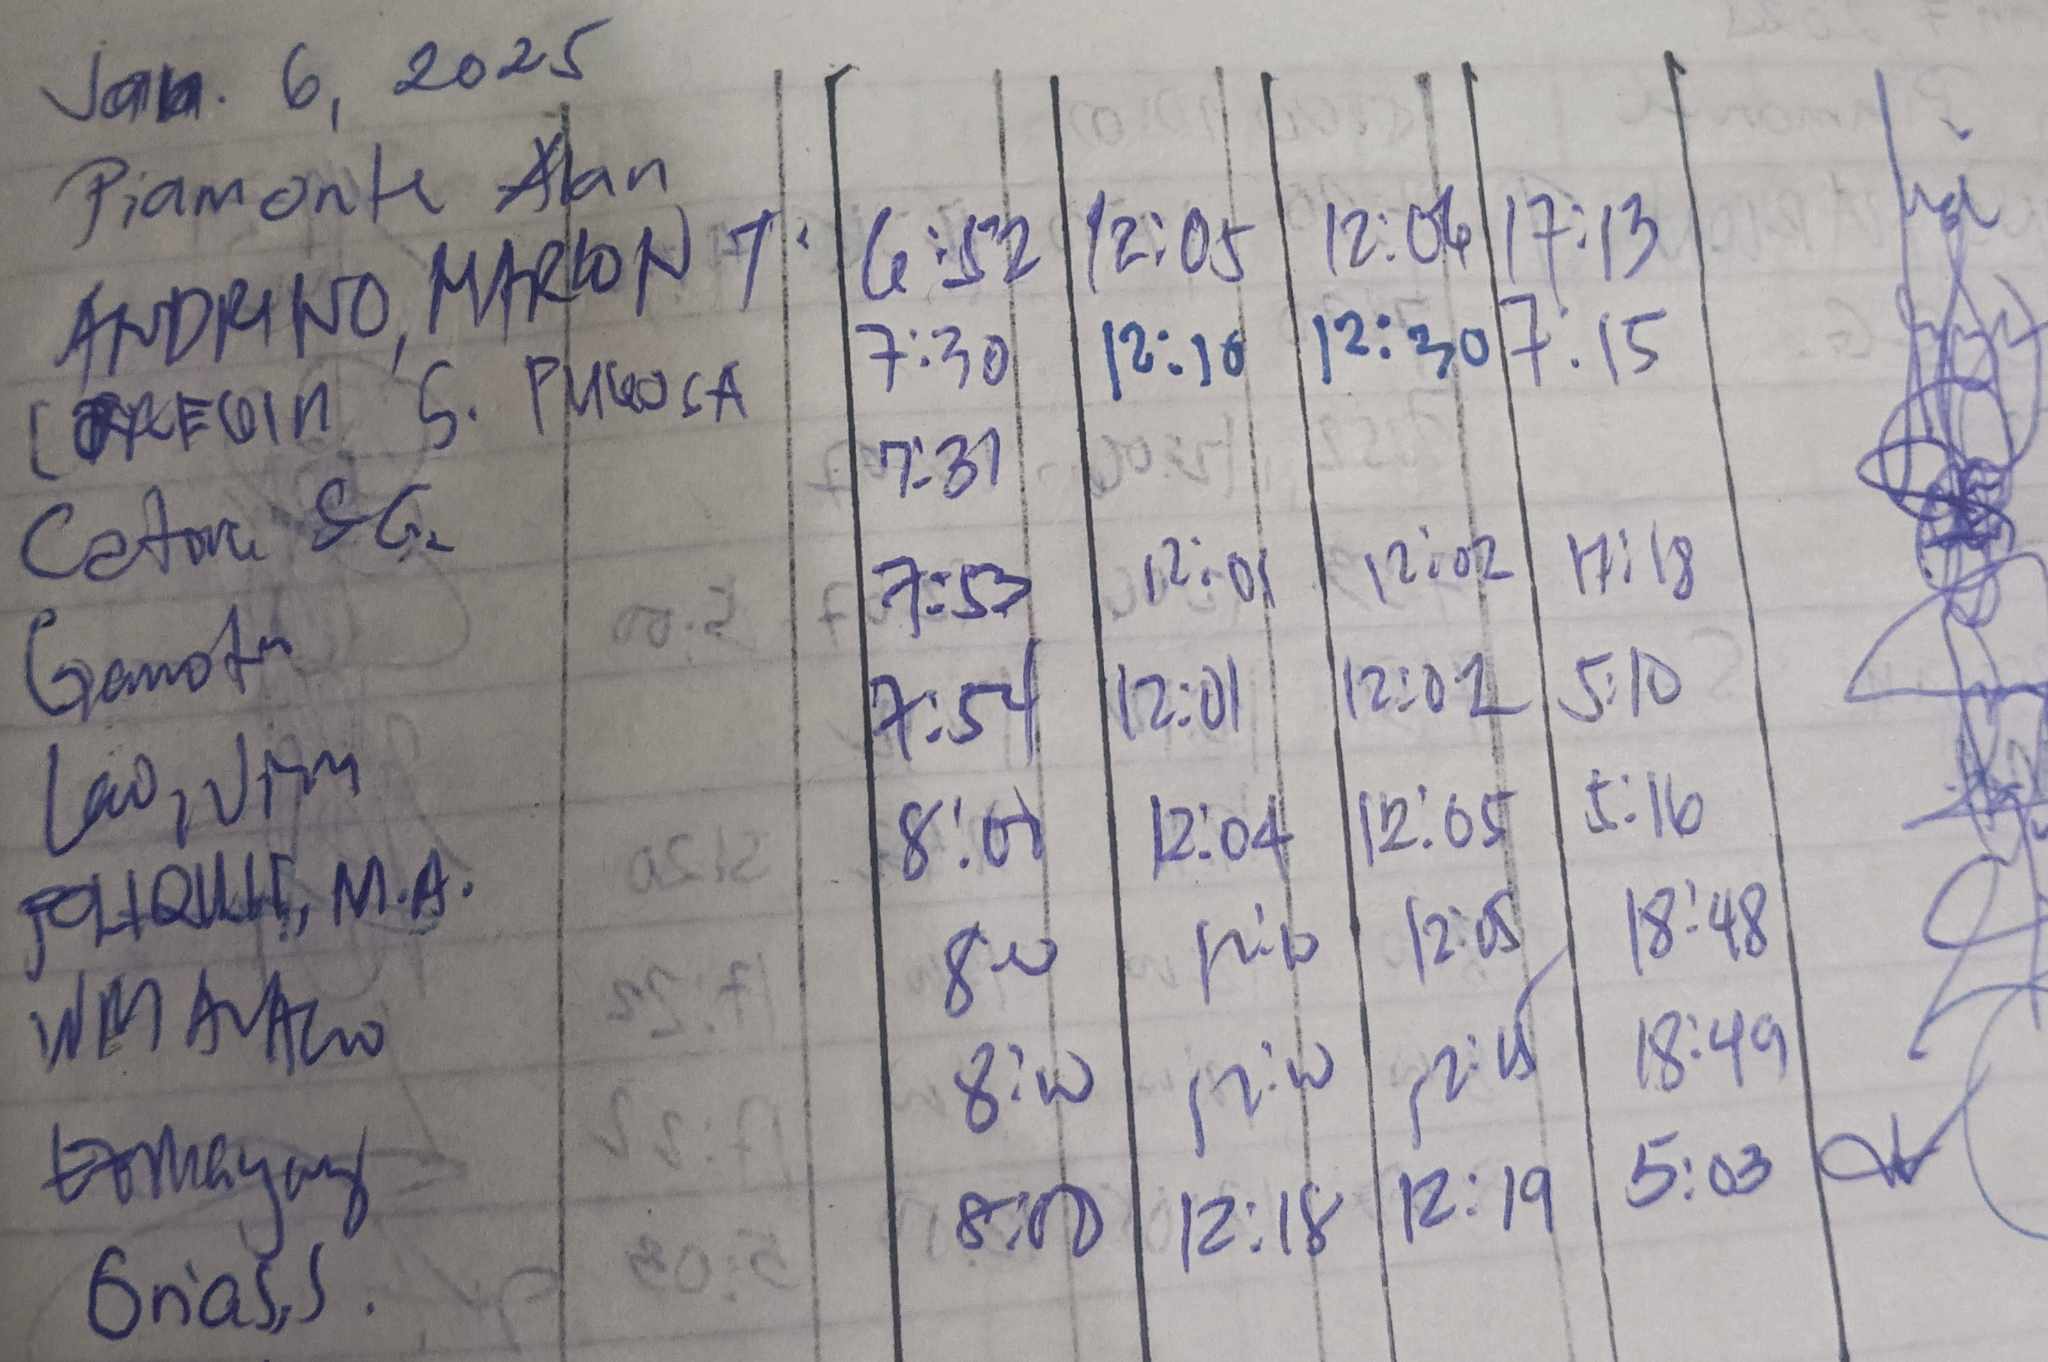 Jan. 6, 2025
Piamonte Alan 6:52 12:05 12:06 17:13
ANDRINO, MARLON T. 7:30 12:10 12:30 7:15
S. PUGOSA 7:31
S G. 7:53 12:01 12:02 17:18
7:54 12:01 12:02 5:10
Lao, Jim 8:00 12:04 12:05 5:16
POLIQUIT, M.A. 8:00 12:10 12:05 18:48
WM 8:10 12:10 12:15 18:49
8:00 12:18 12:19 5:03
Orias, S.